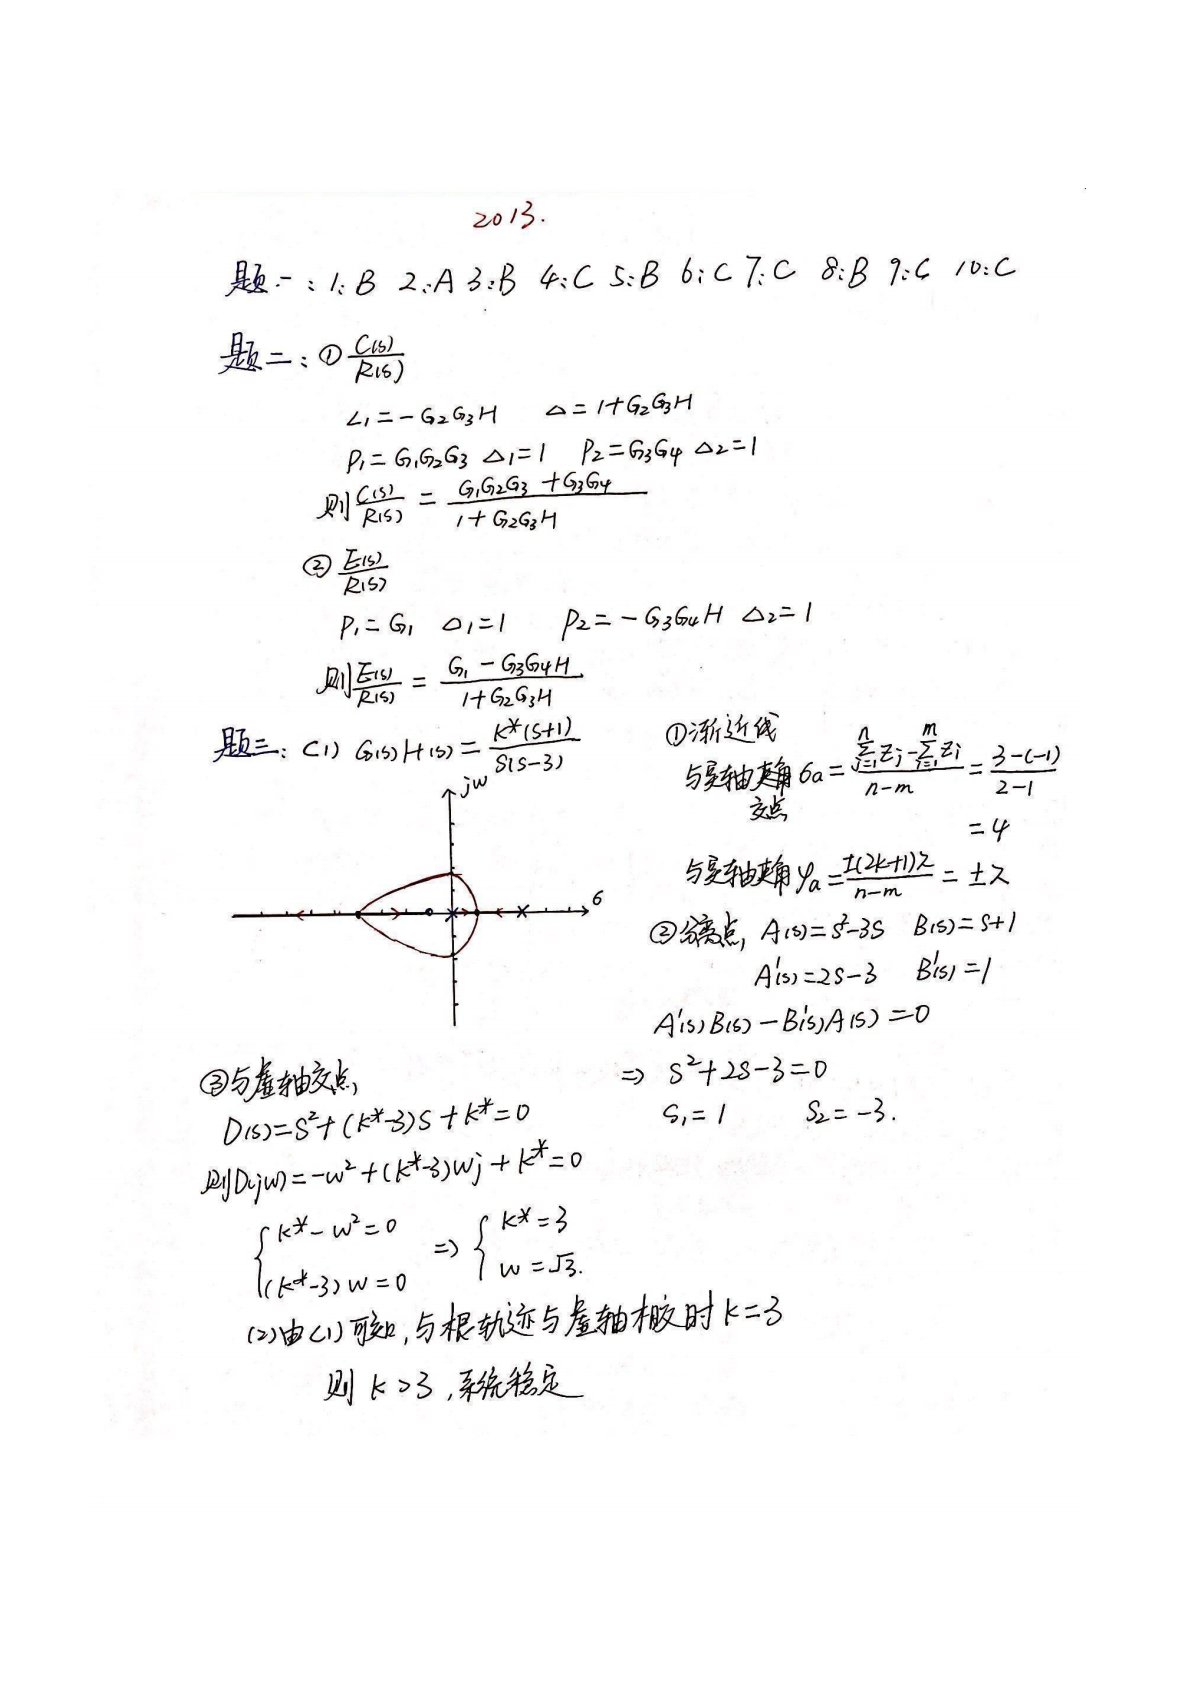 2013.
题一：1：B 2：A 3：B 4：C 5：B 6：C 7：C 8：B 9：C 10：C
题二：① C(s)/R(s)
L₁=-G₂G₃H △=1+G₂G₃H
P₁=G₁G₂G₃ △₁=1 P₂=G₃G₄ △₂=1
则 C(s)/R(s) = (G₁G₂G₃+G₃G₄)/(1+G₂G₃H)
② E(s)/R(s)
P₁=G₁ △₁=1 P₂=-G₃G₄H △₂=1
则 E(s)/R(s) = (G₁-G₃G₄H)/(1+G₂G₃H)
题三：(1) G(s)H(s)=K*(s+1)/s(s-3)
jw
σ
①渐近线
与实轴夹角 σa = (Σ(j=1→n) Zj - Σ(i=1→m) Zi)/(n-m) = (3-(-1))/(2-1)
交点
=4
与实轴夹角 φa = ±(2k+1)π/(n-m) = ±π
②分离点, A(s)=s²-3s B(s)=s+1
A'(s)=2s-3 B'(s)=1
A'(s)B(s)-B'(s)A(s)=0
⇒ s²+2s-3=0
s₁=1 s₂=-3.
③与虚轴交点,
D(s)=s²+(k*-3)s+k*=0
则D(jw)=-w²+(k*-3)wj+k*=0
{ k*-w²=0 ⇒ { k*=3
(k*-3)w=0 w=√3.
(2)由(1)可知,与根轨迹与虚轴相交时k=3
则 k>3,系统稳定